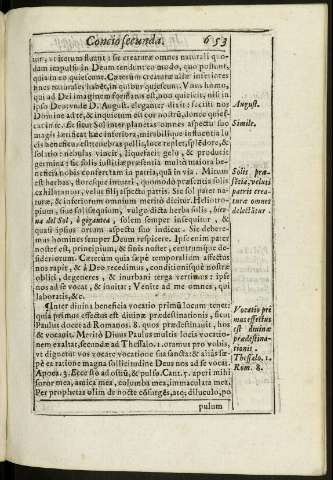 Concio secunda. 653
tur, vt iterum fluant: sic creaturæ omnes naturali quo-
dam impulsu in Deum tendunt eo modo, quo possunt,
quia in eo quiescunt. Cæterùm creaturæ aliæ inferiores
hæc naturales habét, in quibus quiescunt. Vnus homo,
qui ad Dei imaginem formatus est, non quiescit, nisi in
ipso Deo: vnde D. August. eleganter dixit: fecisti nos
Domine ad te, & inquietum est cor nostrũ, donec quies-
cat in te. Et sicut Sol inter planetas omnes aspectu suo
magis lætificat hæc inferiora, mirabilique influentia lu-
cis beneficia: sunt enebras pellit, loca replet, splēdore, &
solatio: nebulas vincit, liquefacit gelu, & producit
germina: sic solis iustitiæ præsentia multò maiora be-
neficia nobis confertam in patria, quã in via. Mirum
est herbas, floresque intueri, quomodo præsentia solis
exhilarantur, velut filij aspectu patris. Sic sol pater natu-
ræ, & inferiorum omnium meritò dicitur. Heliotro-
pium, siue solisequium, vulgò dicta herba solis, hier-
ua del Sol, ò gigantea, solem semper insequitur, &
quasi ipsius oriam aspectu suo indicat. Sic debere-
mus homines semper Deum respicere. Ipse enim pater
noster est, principium, & finis noster, certissimus de-
sideriorum. Cæterùm quia sæpè temporalium affectus
nos rapit, & à Deo retrudimus, conditionisquè nostræ
obliti, degeneres, & inurbani terga vertimus: ipse
nos ad se vocat, & inuitat; Venite ad me omnes, qui
laboratis, &c.
¶Inter diuina beneficia vocatio primũ locum tenet:
quia primus effectus est diuinæ prædestinationis, sicut
Paulus docet ad Romanos. 8. quos prædestinauit, hos
& vocauit. Meritò Diuus Paulus multis locis vocatio-
nem exaltat, secundæ ad Thessalo. 1. oramus pro vobis,
vt dignetur vos vocare vocatione sua sancta: & aliàs sæ-
pè ea ratione magna sollicitudine Deus nos ad se vocat.
Apoca. 3. Ecce sto ad ostiũ, & pulso. Cant. 5. aperi mihi
soror mea, amica mea, columba mea, immaculata mea.
Per prophetas olim de nocte cōsurgēs, atq; diluculo, po
pulum
August.
Simile.
Solis præ-
sētia, veluti
patris crea-
turæ omnes
delectãtur.
Vocatio pri
mus effectus
est diuinæ
prædestina-
tionis.
Thessalo. 1.
Rom. 8.